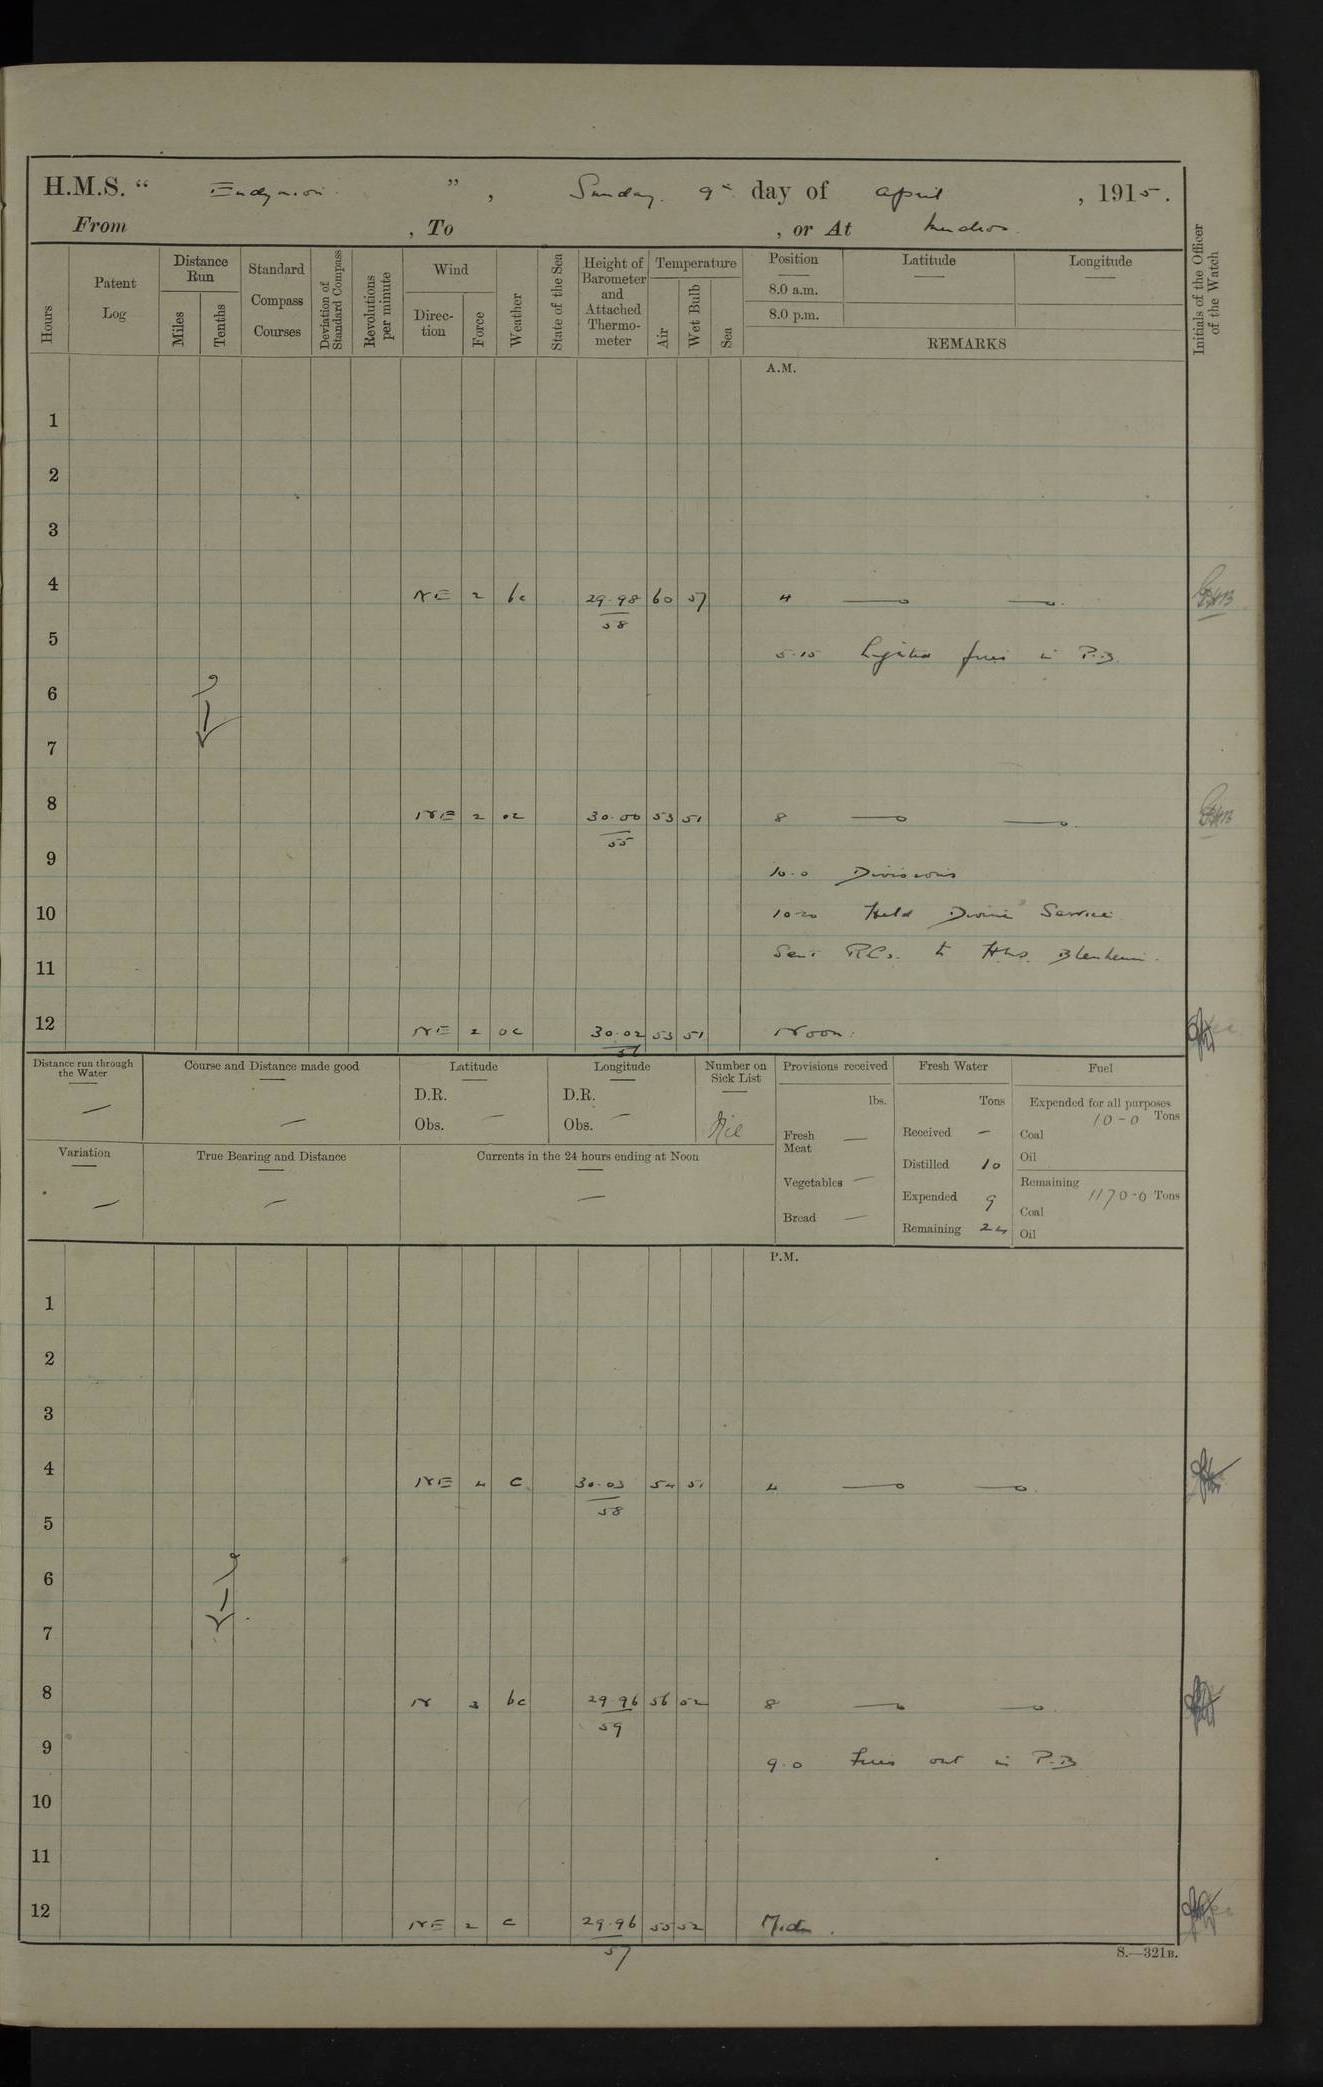 H.M.S. “ Endymion ” , Sunday 9th day of April , 1915.
From , To , or At Mudros
Hours
Patent Log
Distance Run
Miles
Tenths
Standard Compass Courses
Deviation of Standard Compass
Revolutions per minute
Wind
Direction
Force
Weather
State of the Sea
Height of Barometer and Attached Thermometer
Temperature
Air
Wet Bulb
Sea
Position
8.0 a.m.
8.0 p.m.
Latitude
Longitude
REMARKS
Initials of the Officer of the Watch
A.M.
1
2
3
4 NE 2 bc 29.98 60 57 4
58
5 5.15 Lighted fires in P.B.
6
7
8 NE 2 oc 30.00 53 51 8
55
9 10.0 Divisions
10 10.20 Held Divine Service
11 Sent R.C.s. to HMS. Blenheim.
12 NE 2 oc 30.02 53 51 Noon.
Distance run through the Water
—
Course and Distance made good
—
Latitude
D.R.
Obs. —
Longitude
D.R.
Obs. —
Number on Sick List
Nil
Provisions received
lbs.
Fresh Meat —
Vegetables —
Bread —
Fresh Water
Tons
Received —
Distilled 10
Expended 9
Remaining 24
Fuel
Expended for all purposes
10-0 Tons
Coal
Oil
Remaining
1170-0 Tons
Coal
Oil
Variation
—
True Bearing and Distance
—
Currents in the 24 hours ending at Noon
—
P.M.
1
2
3
4 NE 4 c 30.03 54 51 4
58
5
6
7
8 N 3 bc 29.96 56 52 8
59
9 9.0 Fires out in P.B
10
11
12 NE 2 c 29.96 55 52 Midn.
57
S.—321B.